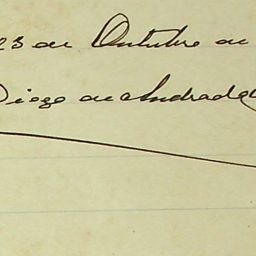 23 de Outubro de
Diogo de Andrade